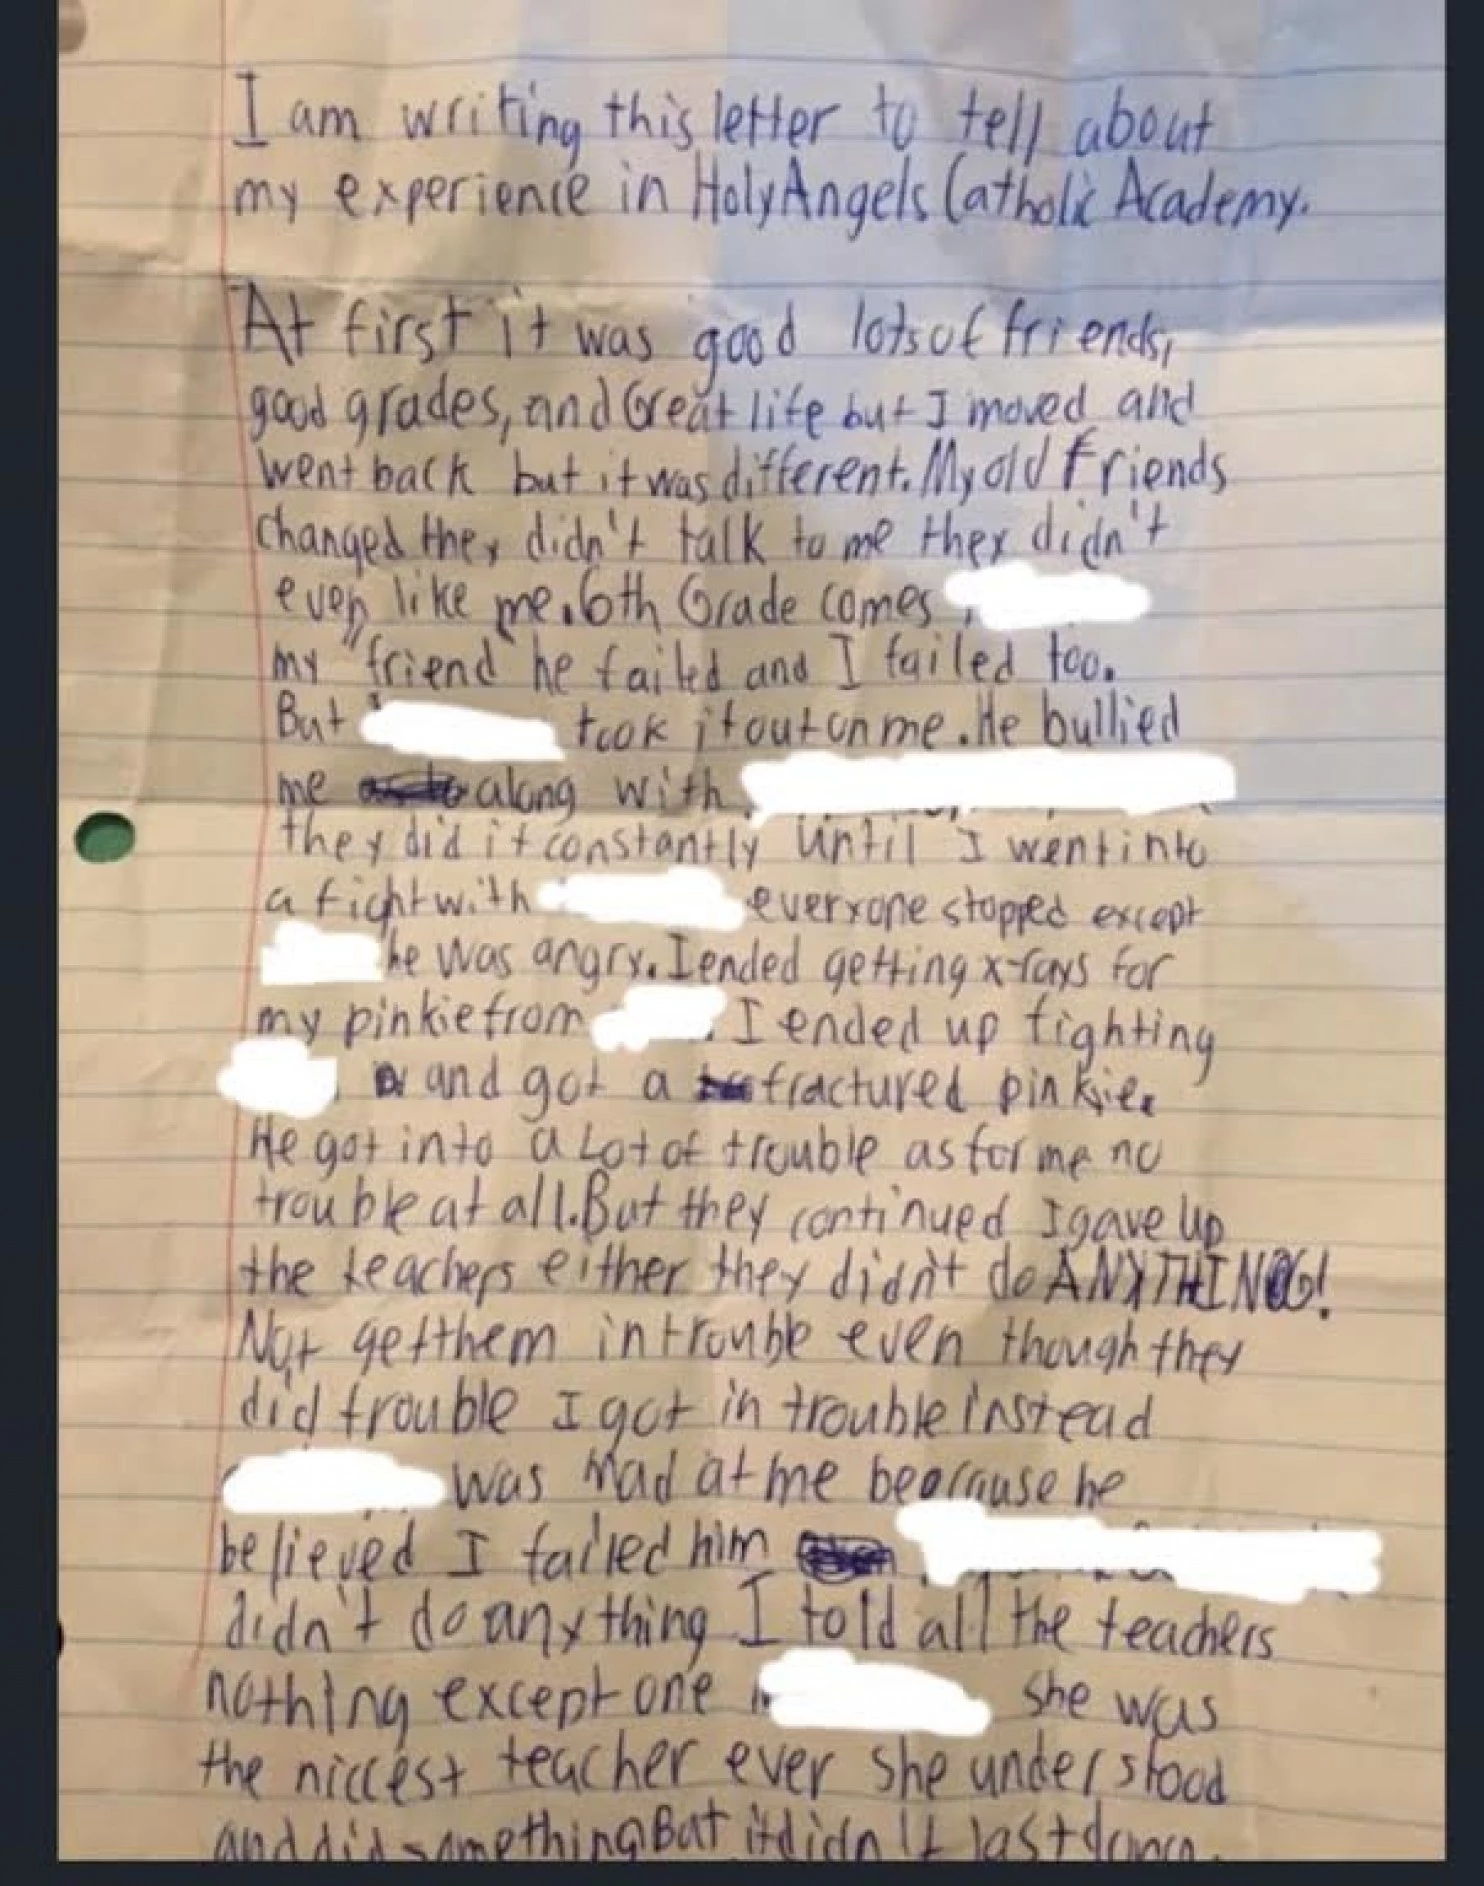 I am writing this letter to tell about
my experience in Holy Angels Catholic Academy.
At first it was good lots of friends,
good grades, and Great life but I moved and
went back but it was different. My old friends
changed they didn't talk to me they didn't
even like me. 6th Grade comes
my "friend" he failed and I failed too.
But took it out on me. He bullied
me along with
they did it constantly until I went into
a fight with everyone stopped except
he was angry. I ended getting x-rays for
my pinkie from . I ended up fighting
and got a fractured pinkie.
He got into a Lot of trouble as for me no
trouble at all. But they continued I gave up
the teachers either they didn't do ANYTHING!
Not get them in trouble even though they
did trouble I got in trouble instead
was mad at me because he
believed I failed him
didn't do anything I told all the teachers
nothing except one she was
the niccest teacher ever she understood
and did something But it didn't last